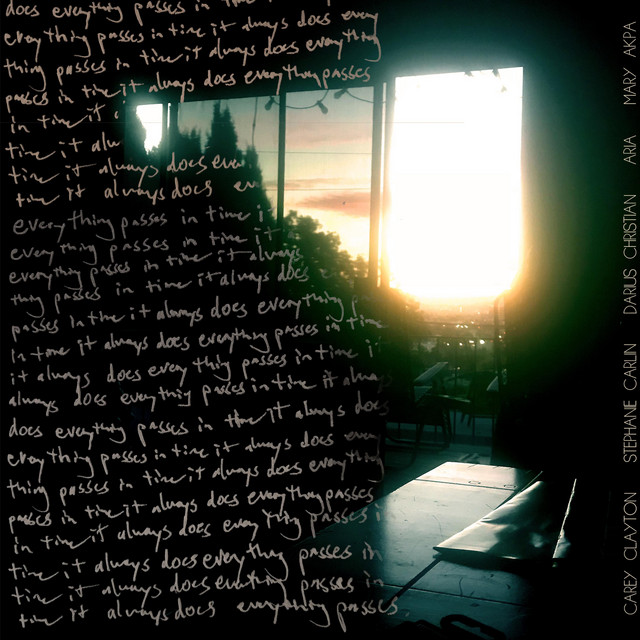 does everything passes in time it always does every
everything passes in time it always does everything
thing passes in time it always does everything
passes in time it always does everything passes
in time it
time it alw
time it always does ever
time it always does ev
everything passes in time i
everything passes in time it
everything passes in time it always
thing passes in time it always does e
passes in time it always does everything p
in time it always does everything passes in time
it always does everything passes in time it
always does everything passes in time it always
does everything passes in time it always does
everything passes in time it always does every
thing passes in time it always does everything
passes in time it always does everything passes
in time it always does everything passes i
time it always does everything passes in
time it always does everything passes in
time it always does everything passes
CAREY CLAYTON STEPHANIE CARLIN DARIUS CHRISTIAN ARIA MARY AKPA